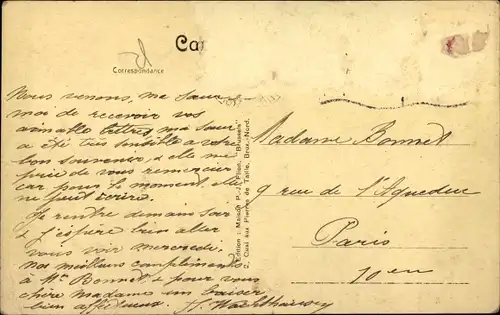 Ca
Correspondance
Nous venons, ma sœur
moi de recevoir vos
aimables lettres, ma sœur
a été très sensible a votre
bon souvenir, & elle me
prie de vous remercier
car pour le moment, elle
ne peut écrire.
Je rentre demain soir
& j'espère bien aller
vous voir mercredi.
Nos meilleurs compliments
à Mr Bonnet, & pour vous
chère Madame un baiser
bien affectueux.
Edition : Maison P.-J. Flion, "Brussels"
2, Quai aux Pierres de Taille, Brux.-Nord.
Madame Bonnet
9 rue de l'Aqueduc
Paris
10en